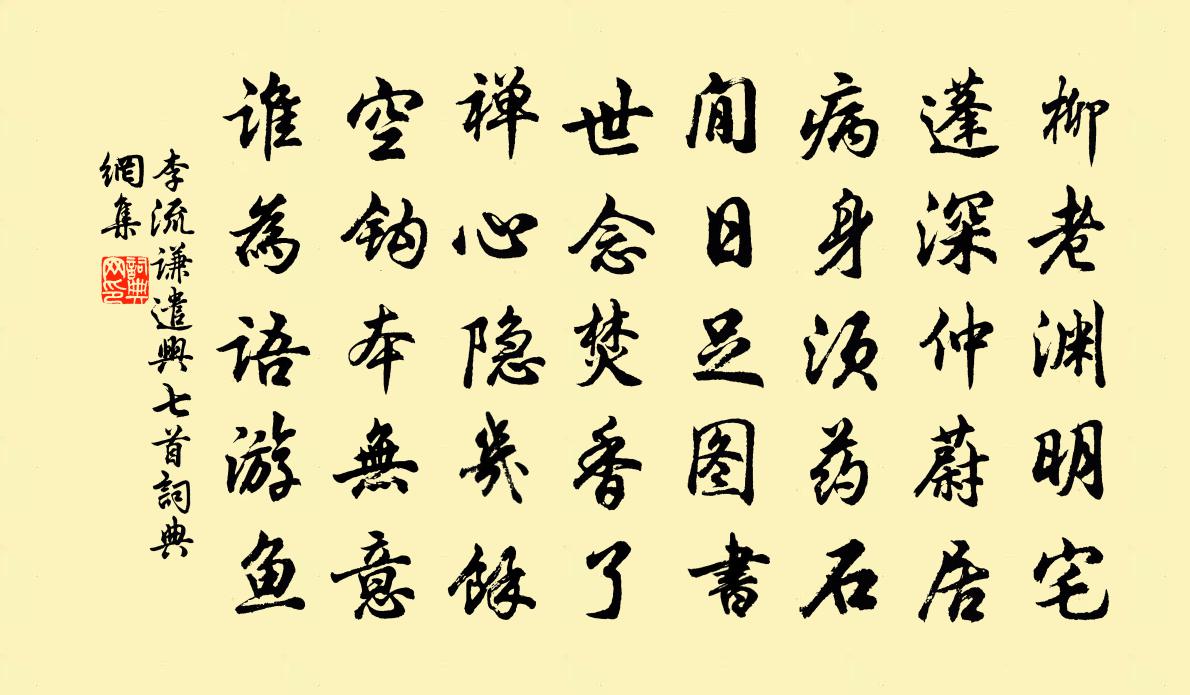 柳老渊明宅
蓬深仲蔚居
病身须药石
閒日足图書
世念焚香了
禅心隐几餘
空钩本無意
谁為語游鱼
李流谦遣興七首詞典
網集
詞典
网印